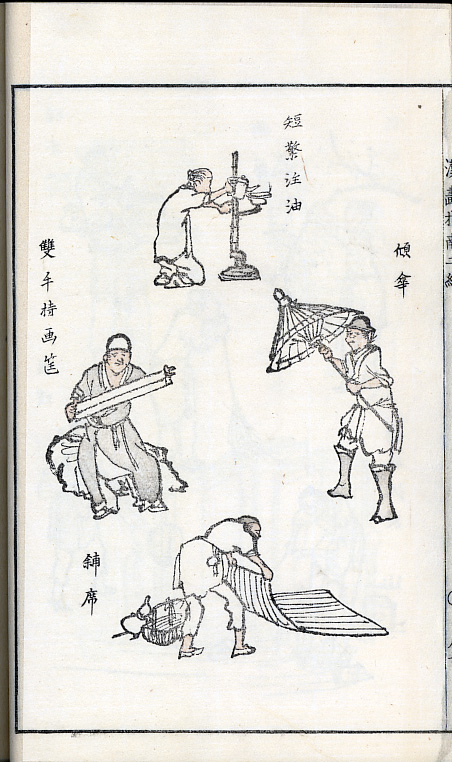 漢畫指南二編
傾傘
短檠注油
雙手持画筐
鋪席